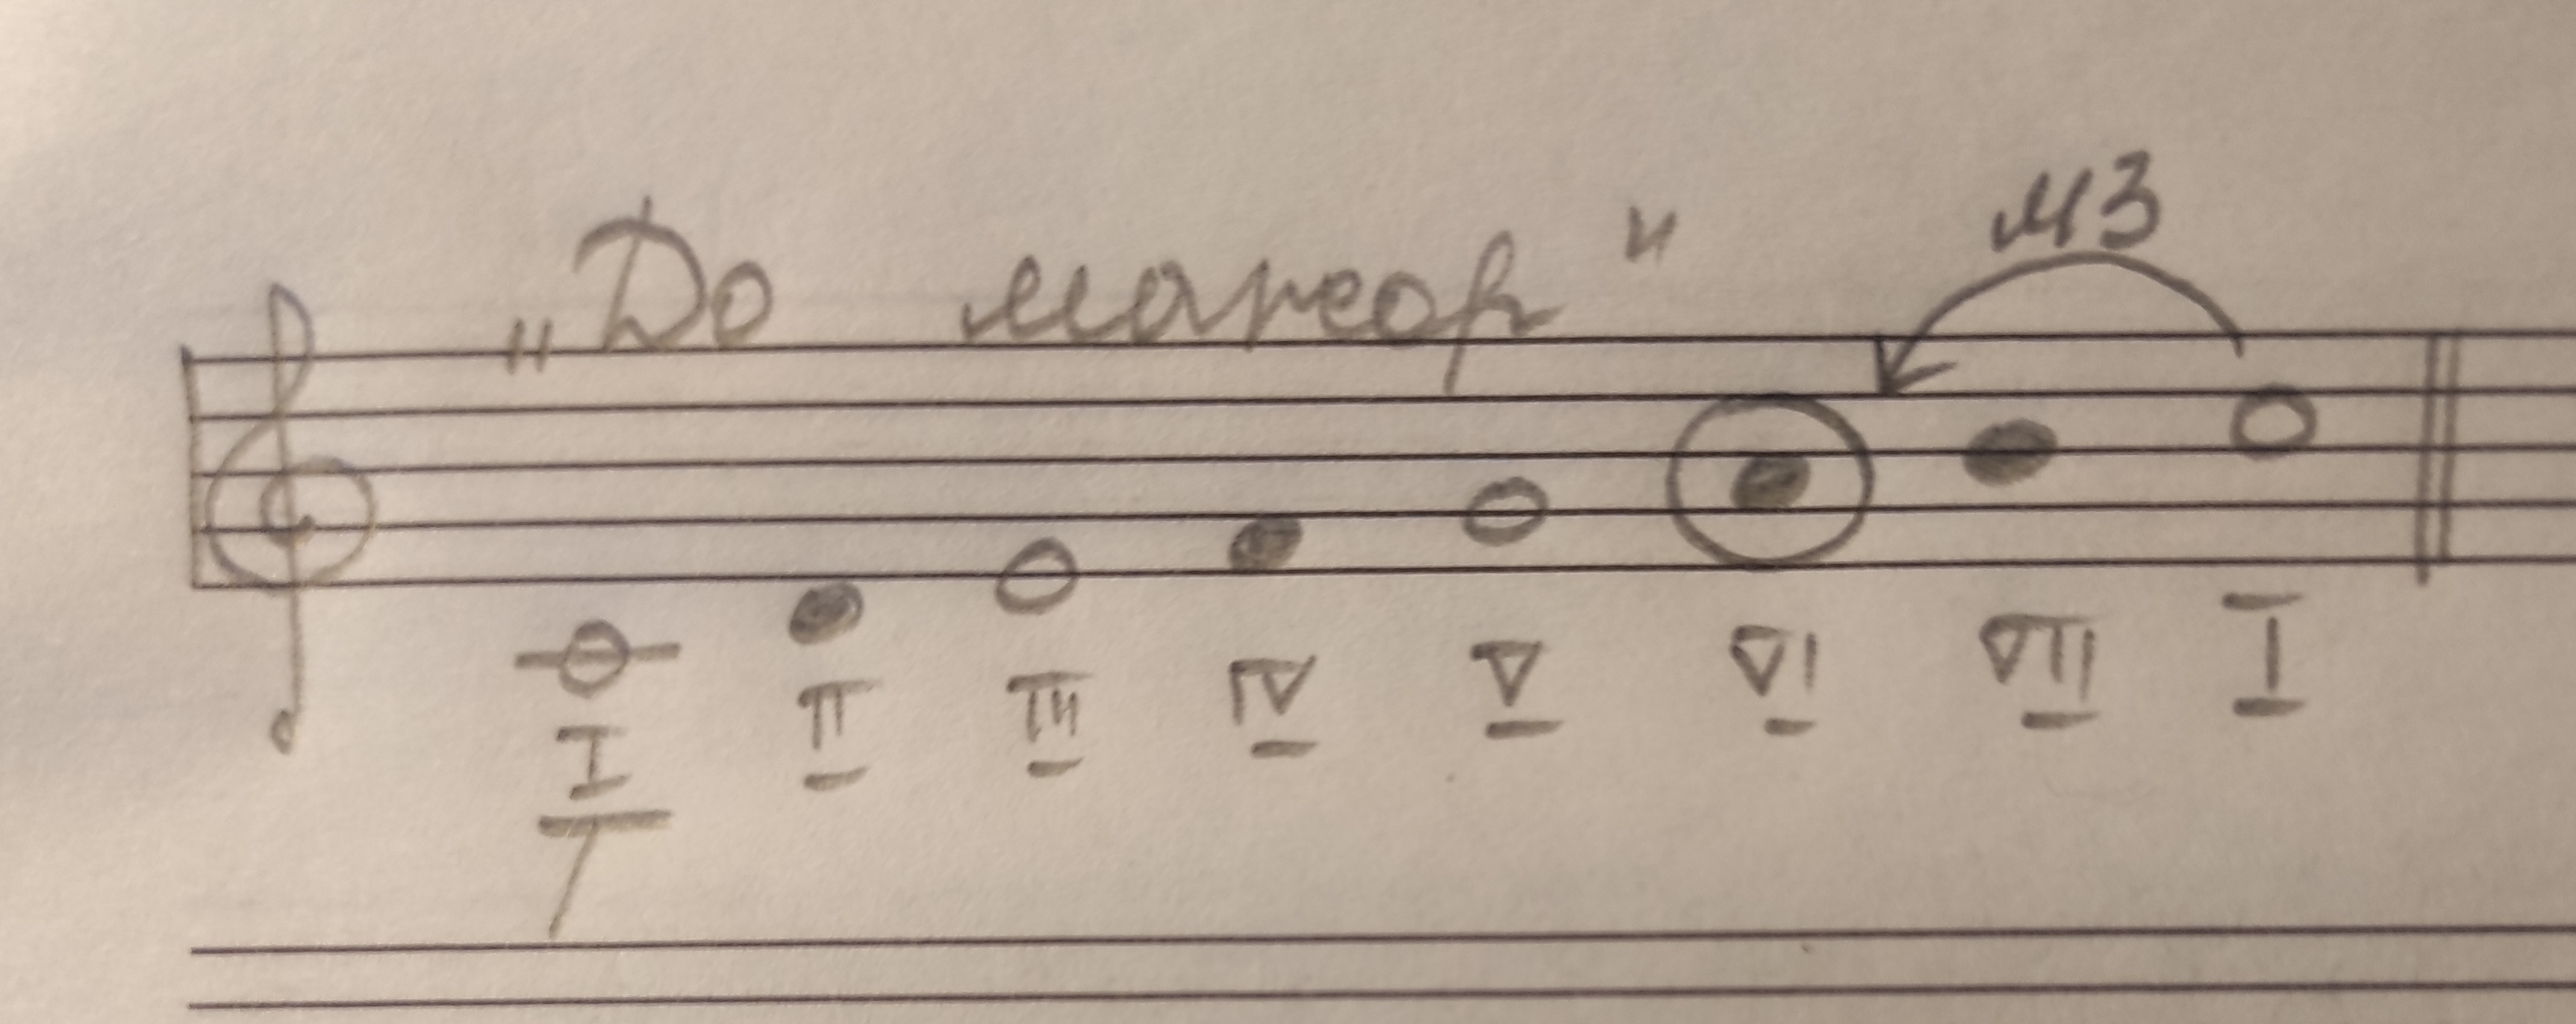 „До мажор"
м3
I II III IV V VI VII I
T